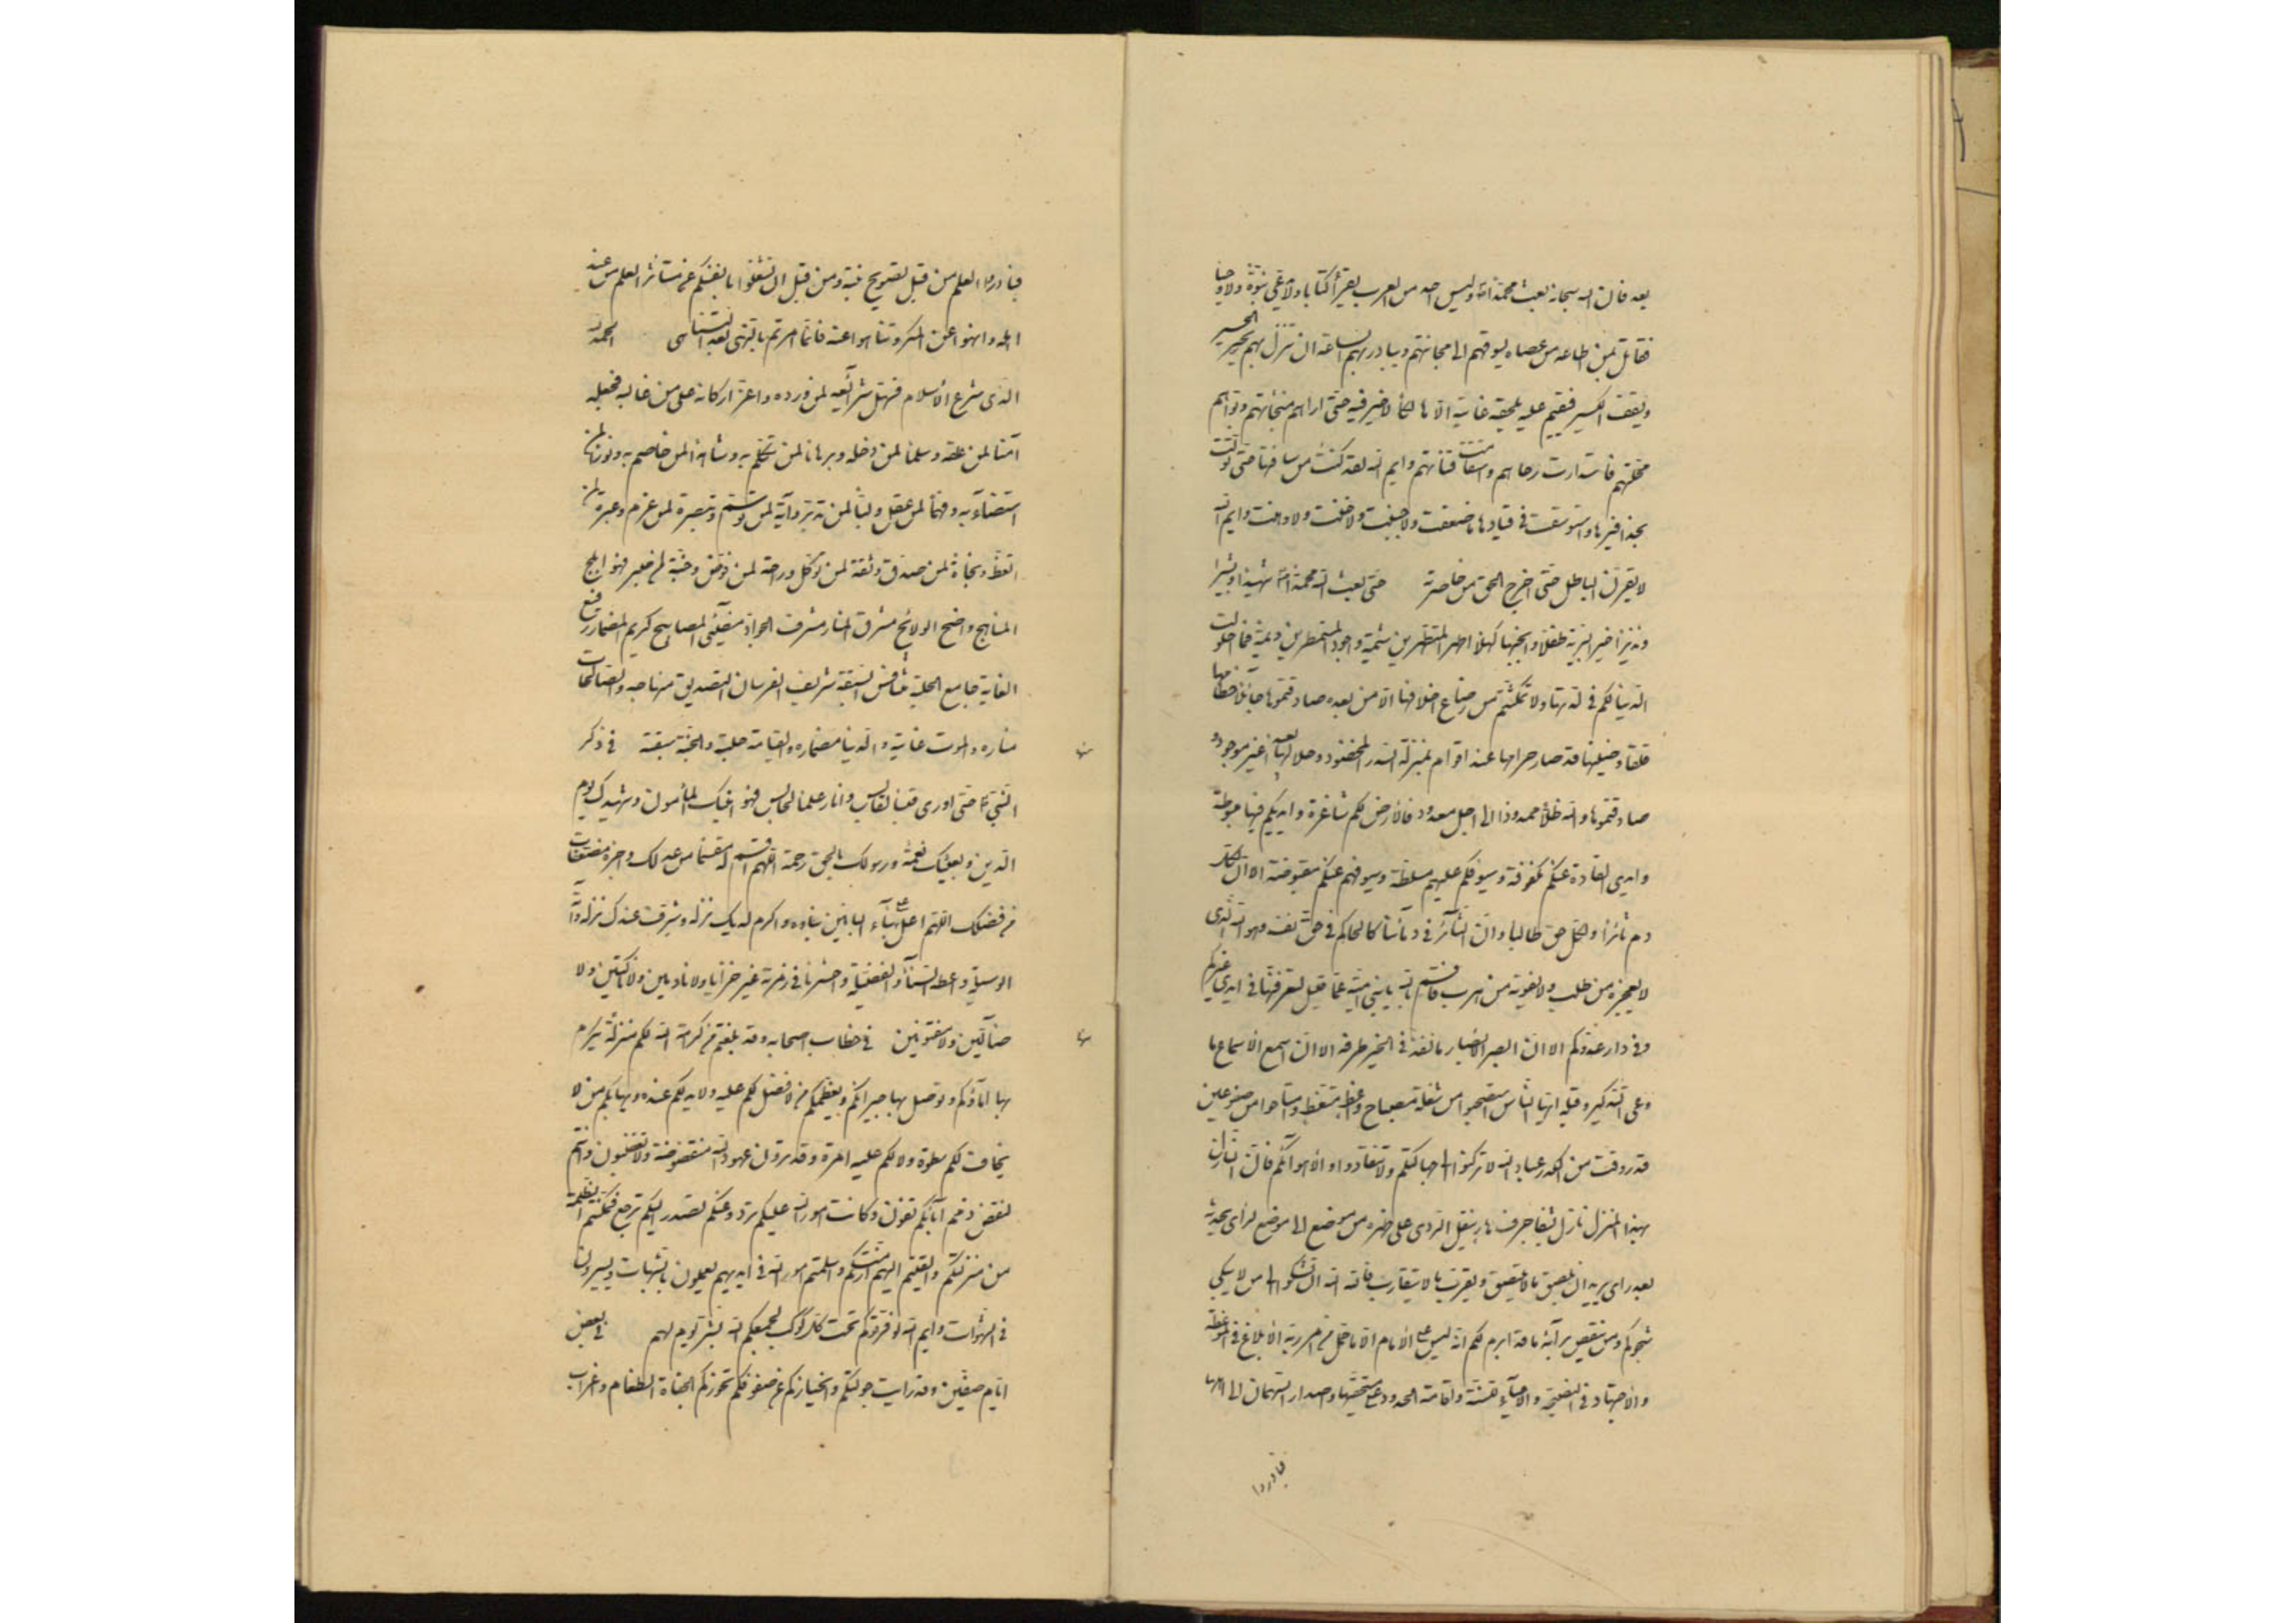 بعد فان الله سبحانه بعث محمدا ص وليس احد من العرب يقرأ كتابا ولا يدعي نبوة ولا وحيا
فقاتل بمن اطاعه من عصاه يسوقهم الى منجاتهم ويبادر بهم الساعة ان تنزل بهم يحسر الحسير
ويقف الكسير فيقيم عليه يلحقه غايته الا هالكا لا خير فيه حتى اراهم منجاتهم وبوأهم
محلتهم فاستدارت رحاهم واستقامت قناتهم وايم الله لقد كنت من ساقتها حتى تولت
بحذافيرها واستوسقت في قيادها ما ضعفت ولا جبنت ولا خنت ولا وهنت وايم الله
لابقرن الباطل حتى اخرج الحق من خاصرته حتى بعث الله محمدا ص شهيدا وبشيرا
ونذيرا خير البرية طفلا وانجبها كهلا اطهر المتطهرين شيمة واجود المستمطرين ديمة فما احلولت
الدنيا لكم في لذتها ولا تمكنتم من رضاع اخلافها الا من بعده صادفتموها جائلا خطامها
قلقا وضينها قد صار حرامها عند اقوام بمنزلة السدر المخضود وحلالها بعيدا غير موجود و
صادفتموها والله ظلا ممدودا الى اجل معدود فالارض لكم شاغرة وايديكم فيها مبسوطة
وايدي القادة عنكم مكفوفة وسيوفكم عليهم مسلطة وسيوفهم عنكم مقبوضة الا ان لكل
دم ثائرا ولكل حق طالبا وان الثائر في دمائنا كالحاكم في حق نفسه وهو الله الذي
لا يعجزه من طلب ولا يفوته من هرب فاقسم بالله يا بني امية عما قليل لتعرفنها في ايدي غيركم
وفي دار عدوكم الا ان ابصر الابصار ما نفذ في الخير طرفه الا ان اسمع الاسماع ما
وعى التذكير وقبله ايها الناس استصبحوا من شعلة مصباح واعظ متعظ وامتاحوا من صفو عين
قد روقت من الكدر عباد الله لا تركنوا الى جهالتكم ولا تنقادوا لاهوائكم فان النازل
بهذا المنزل نازل بشفا جرف هار ينقل الردى على ظهره من موضع الى موضع لرأي يحدثه
بعد رأي يريد ان يلصق ما لا يلتصق ويقرب ما لا يتقارب فالله الله ان تشكوا الى من لا يشكي
شجوكم ومن ينقض برأيه ما قد ابرم لكم انه ليس على الامام الا ما حمل من امر ربه الابلاغ في الموعظة
والاجتهاد في النصيحة والاحياء للسنة واقامة الحدود على مستحقيها واصدار السهمان الى اهلها
فبادروا
فبادروا العلم من قبل تصويح نبته ومن قبل ان تشغلوا بانفسكم عن مستثار العلم من عند
اهله وانهوا عن المنكر وتناهوا عنه فانما امرتم بالنهي بعد التناهي الحمد لله
الذي شرع الاسلام فسهل شرائعه لمن ورده واعز اركانه على من غالبه فجعله
آمنا لمن علقه وسلما لمن دخله وبرهانا لمن تكلم به وشاهدا لمن خاصم به ونورا لمن
استضاء به وفهما لمن عقل ولبا لمن تدبر وآية لمن توسم وتبصرة لمن عزم وعبرة لمن
اتعظ ونجاة لمن صدق وثقة لمن توكل وراحة لمن فوض وجنة لمن صبر فهو ابلج
المناهج واضح الولائج مشرق المنار مشرف الجواد مضيئ المصابيح كريم المضمار رفيع
الغاية جامع الحلبة متنافس السبقة شريف الفرسان التصديق منهاجه والصالحات
مناره والموت غايته والدنيا مضماره والقيامة حلبته والجنة سبقته في ذكر
النبي ص حتى اورى قبسا لقابس وانار علما لحابس فهو امينك المأمون وشهيدك يوم
الدين وبعيثك نعمة ورسولك بالحق رحمة اللهم اقسم له مقسما من عدلك واجزه مضعفات
من فضلك اللهم اعل على بناء البانين بناءه واكرم لديك نزله وشرف عندك منزله وآته
الوسيلة واعطه السناء والفضيلة واحشرنا في زمرته غير خزايا ولا نادمين ولا ناكبين ولا
ضالين ولا مفتونين في خطاب اصحابه وقد بلغتم من كرامة الله لكم منزلة تكرم
بها اماؤكم وتوصل بها جيرانكم ويعظمكم من لا فضل لكم عليه ولا يد لكم عنده ويهابكم من لا
يخاف لكم سطوة ولا لكم عليه امرة وقد ترون عهود الله منقوضة ولا تغضبون وانتم
لنقض ذمم آبائكم تأنفون وكانت امور الله عليكم ترد وعنكم تصدر واليكم ترجع فمكنتم الظلمة
من منزلتكم والقيتم اليهم ازمتكم واسلمتم امور الله في ايديهم يعملون بالشبهات ويسيرون
في الشهوات وايم الله لو فرقوكم تحت كل كوكب لجمعكم الله لشر يوم لهم في بعض
ايام صفين وقد رأيت جولتكم وانحيازكم عن صفوفكم تحوزكم الجفاة الطغام واعراب